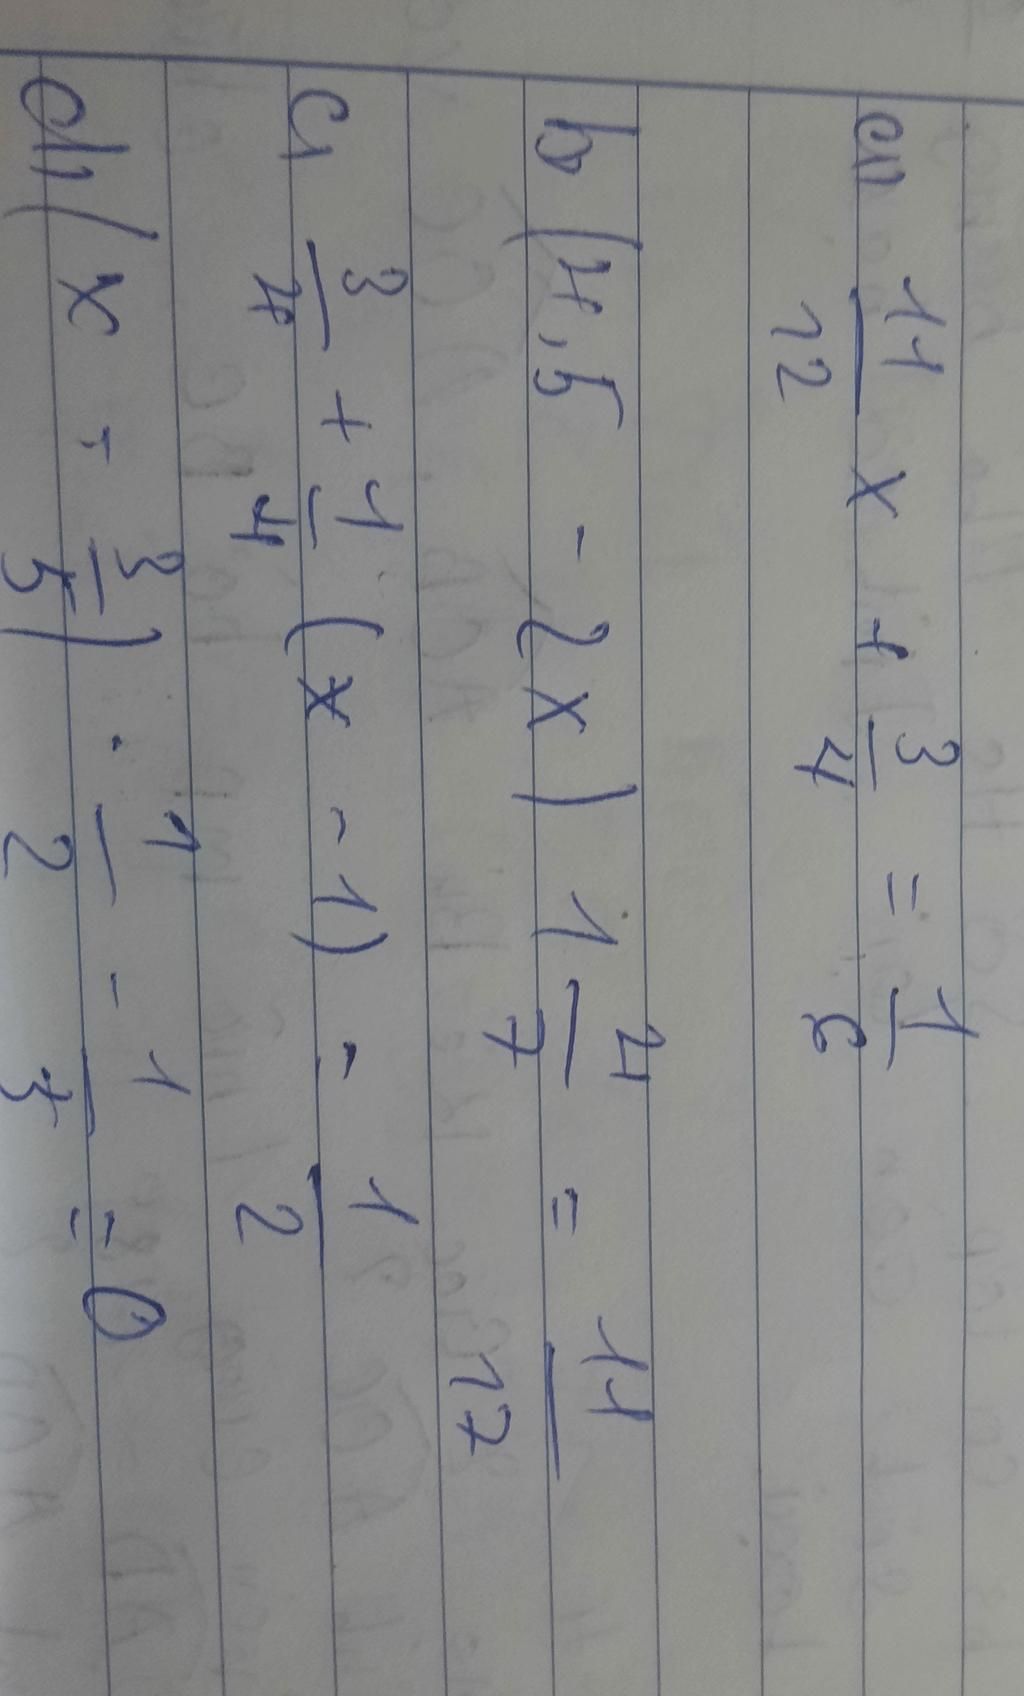 a) 11/12 x + 3/4 = 1/6
b) (4,5 - 2x) 1 4/7 = 11/17
c) 3/4 + 1/4 (x - 1) = 1/2
d) (x - 3/5) . 1/2 - 1/7 = 0